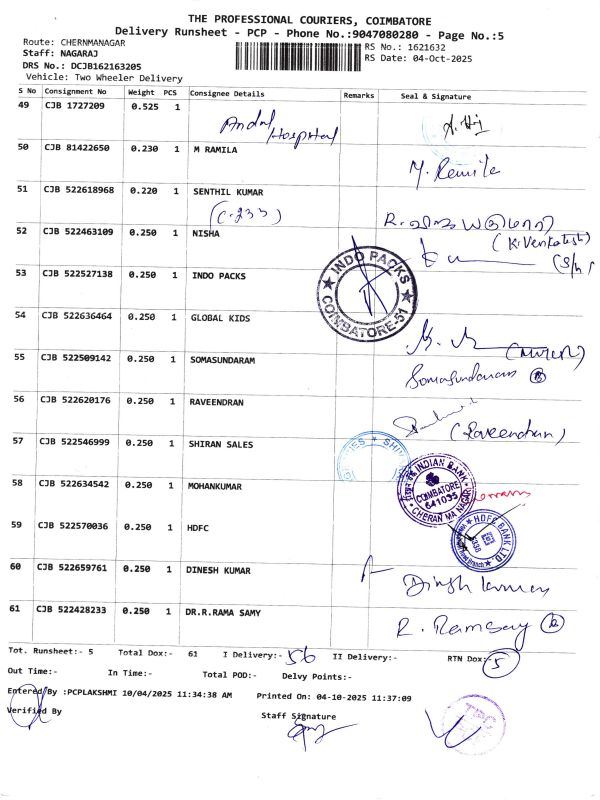 THE PROFESSIONAL COURIERS, COIMBATORE
Delivery Runsheet - PCP - Phone No.:9047080280 - Page No.:5
Route: CHERNMANAGAR
RS No.: 1621632
Staff: NAGARAJ
RS Date: 04-Oct-2025
DRS No.: DCJB162163205
Vehicle: Two Wheeler Delivery
S No Consignment No Weight PCS Consignee Details Remarks Seal & Signature
49 CJB 1727209 0.525 1
Hospital
50 CJB 81422650 0.230 1 M RAMILA
M. Ramila
51 CJB 522618968 0.220 1 SENTHIL KUMAR
(C-233)
52 CJB 522463109 0.250 1 NISHA
(K.Venkatesh)
53 CJB 522527138 0.250 1 INDO PACKS
INDO PACKS
COIMBATORE-51
54 CJB 522636464 0.250 1 GLOBAL KIDS
55 CJB 522509142 0.250 1 SOMASUNDARAM
Somasundaram
56 CJB 522620176 0.250 1 RAVEENDRAN
(Raveendran)
57 CJB 522546999 0.250 1 SHIRAN SALES
58 CJB 522634542 0.250 1 MOHANKUMAR
INDIAN BANK
COIMBATORE
641035
CHERAN MA NAGAR
59 CJB 522570036 0.250 1 HDFC
HDFC BANK LTD.
60 CJB 522659761 0.250 1 DINESH KUMAR
Dinesh kumar
61 CJB 522428233 0.250 1 DR.R.RAMA SAMY
R. Ramsay
Tot. Runsheet:- 5 Total Dox:- 61 I Delivery:- 56 II Delivery:- RTN Dox:- 5
Out Time:- In Time:- Total POD:- Delvy Points:-
Entered By :PCPLAKSHMI 10/04/2025 11:34:38 AM Printed On: 04-10-2025 11:37:09
Verified By Staff Signature